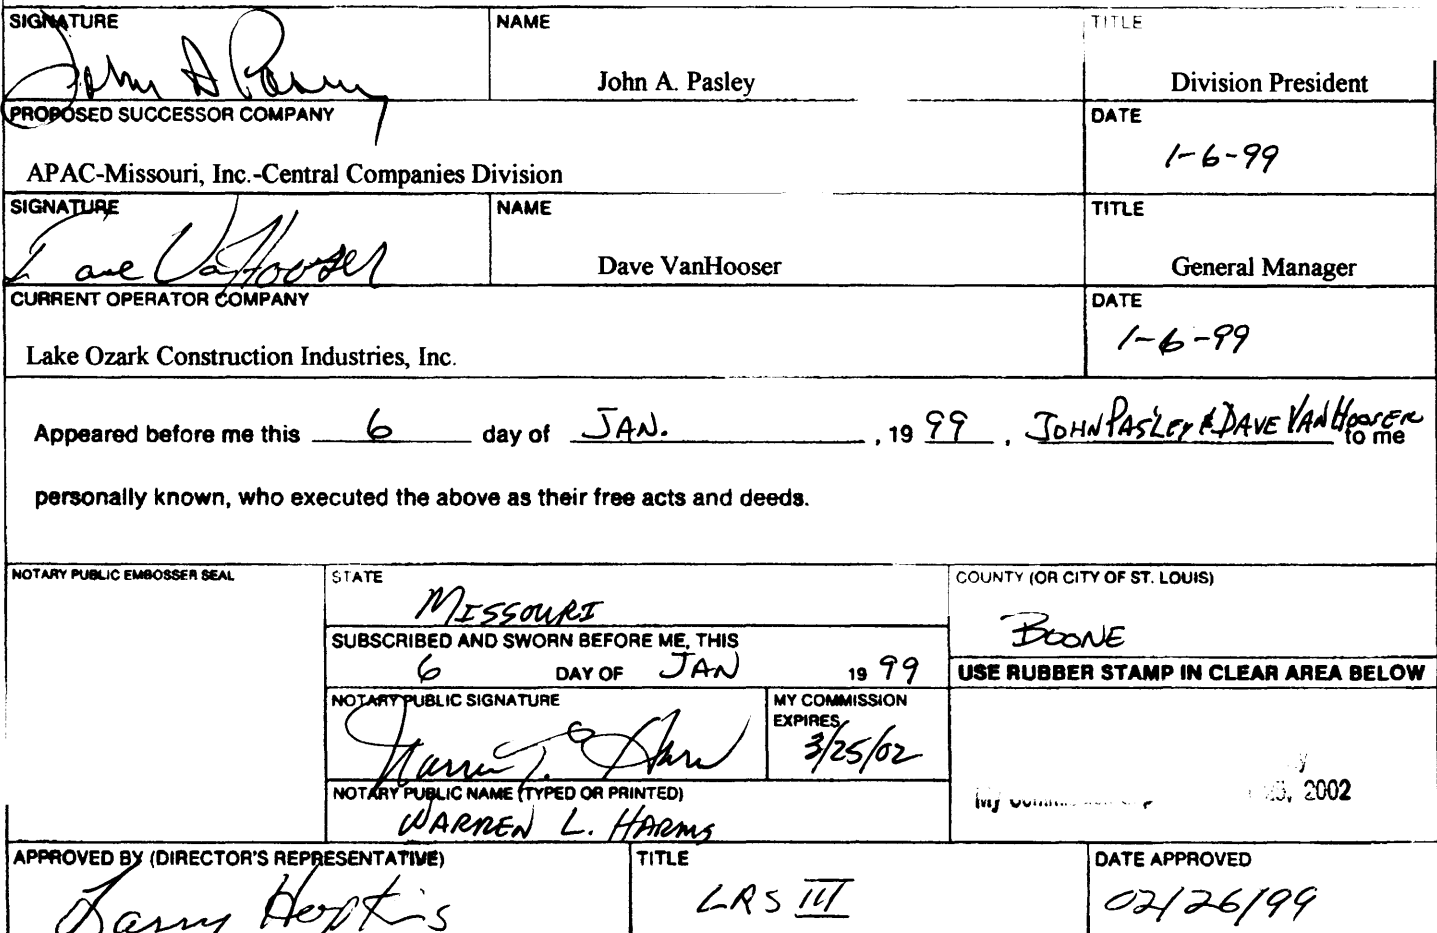 SIGNATURE NAME TITLE
John A Pasley John A. Pasley Division President
PROPOSED SUCCESSOR COMPANY DATE
APAC-Missouri, Inc.-Central Companies Division 1-6-99
SIGNATURE NAME TITLE
Dave VanHooser Dave VanHooser General Manager
CURRENT OPERATOR COMPANY DATE
Lake Ozark Construction Industries, Inc. 1-6-99
Appeared before me this 6 day of JAN. , 19 99 , JOHN PASLEY & DAVE VANHOOSER to me
personally known, who executed the above as their free acts and deeds.
NOTARY PUBLIC EMBOSSER SEAL STATE COUNTY (OR CITY OF ST. LOUIS)
MISSOURI BOONE
SUBSCRIBED AND SWORN BEFORE ME, THIS
6 DAY OF JAN 19 99 USE RUBBER STAMP IN CLEAR AREA BELOW
NOTARY PUBLIC SIGNATURE MY COMMISSION
EXPIRES
3/25/02
My 2002
NOTARY PUBLIC NAME (TYPED OR PRINTED)
WARREN L. HARMS
APPROVED BY (DIRECTOR'S REPRESENTATIVE) TITLE DATE APPROVED
Larry Hopkins LRS III 02/26/99